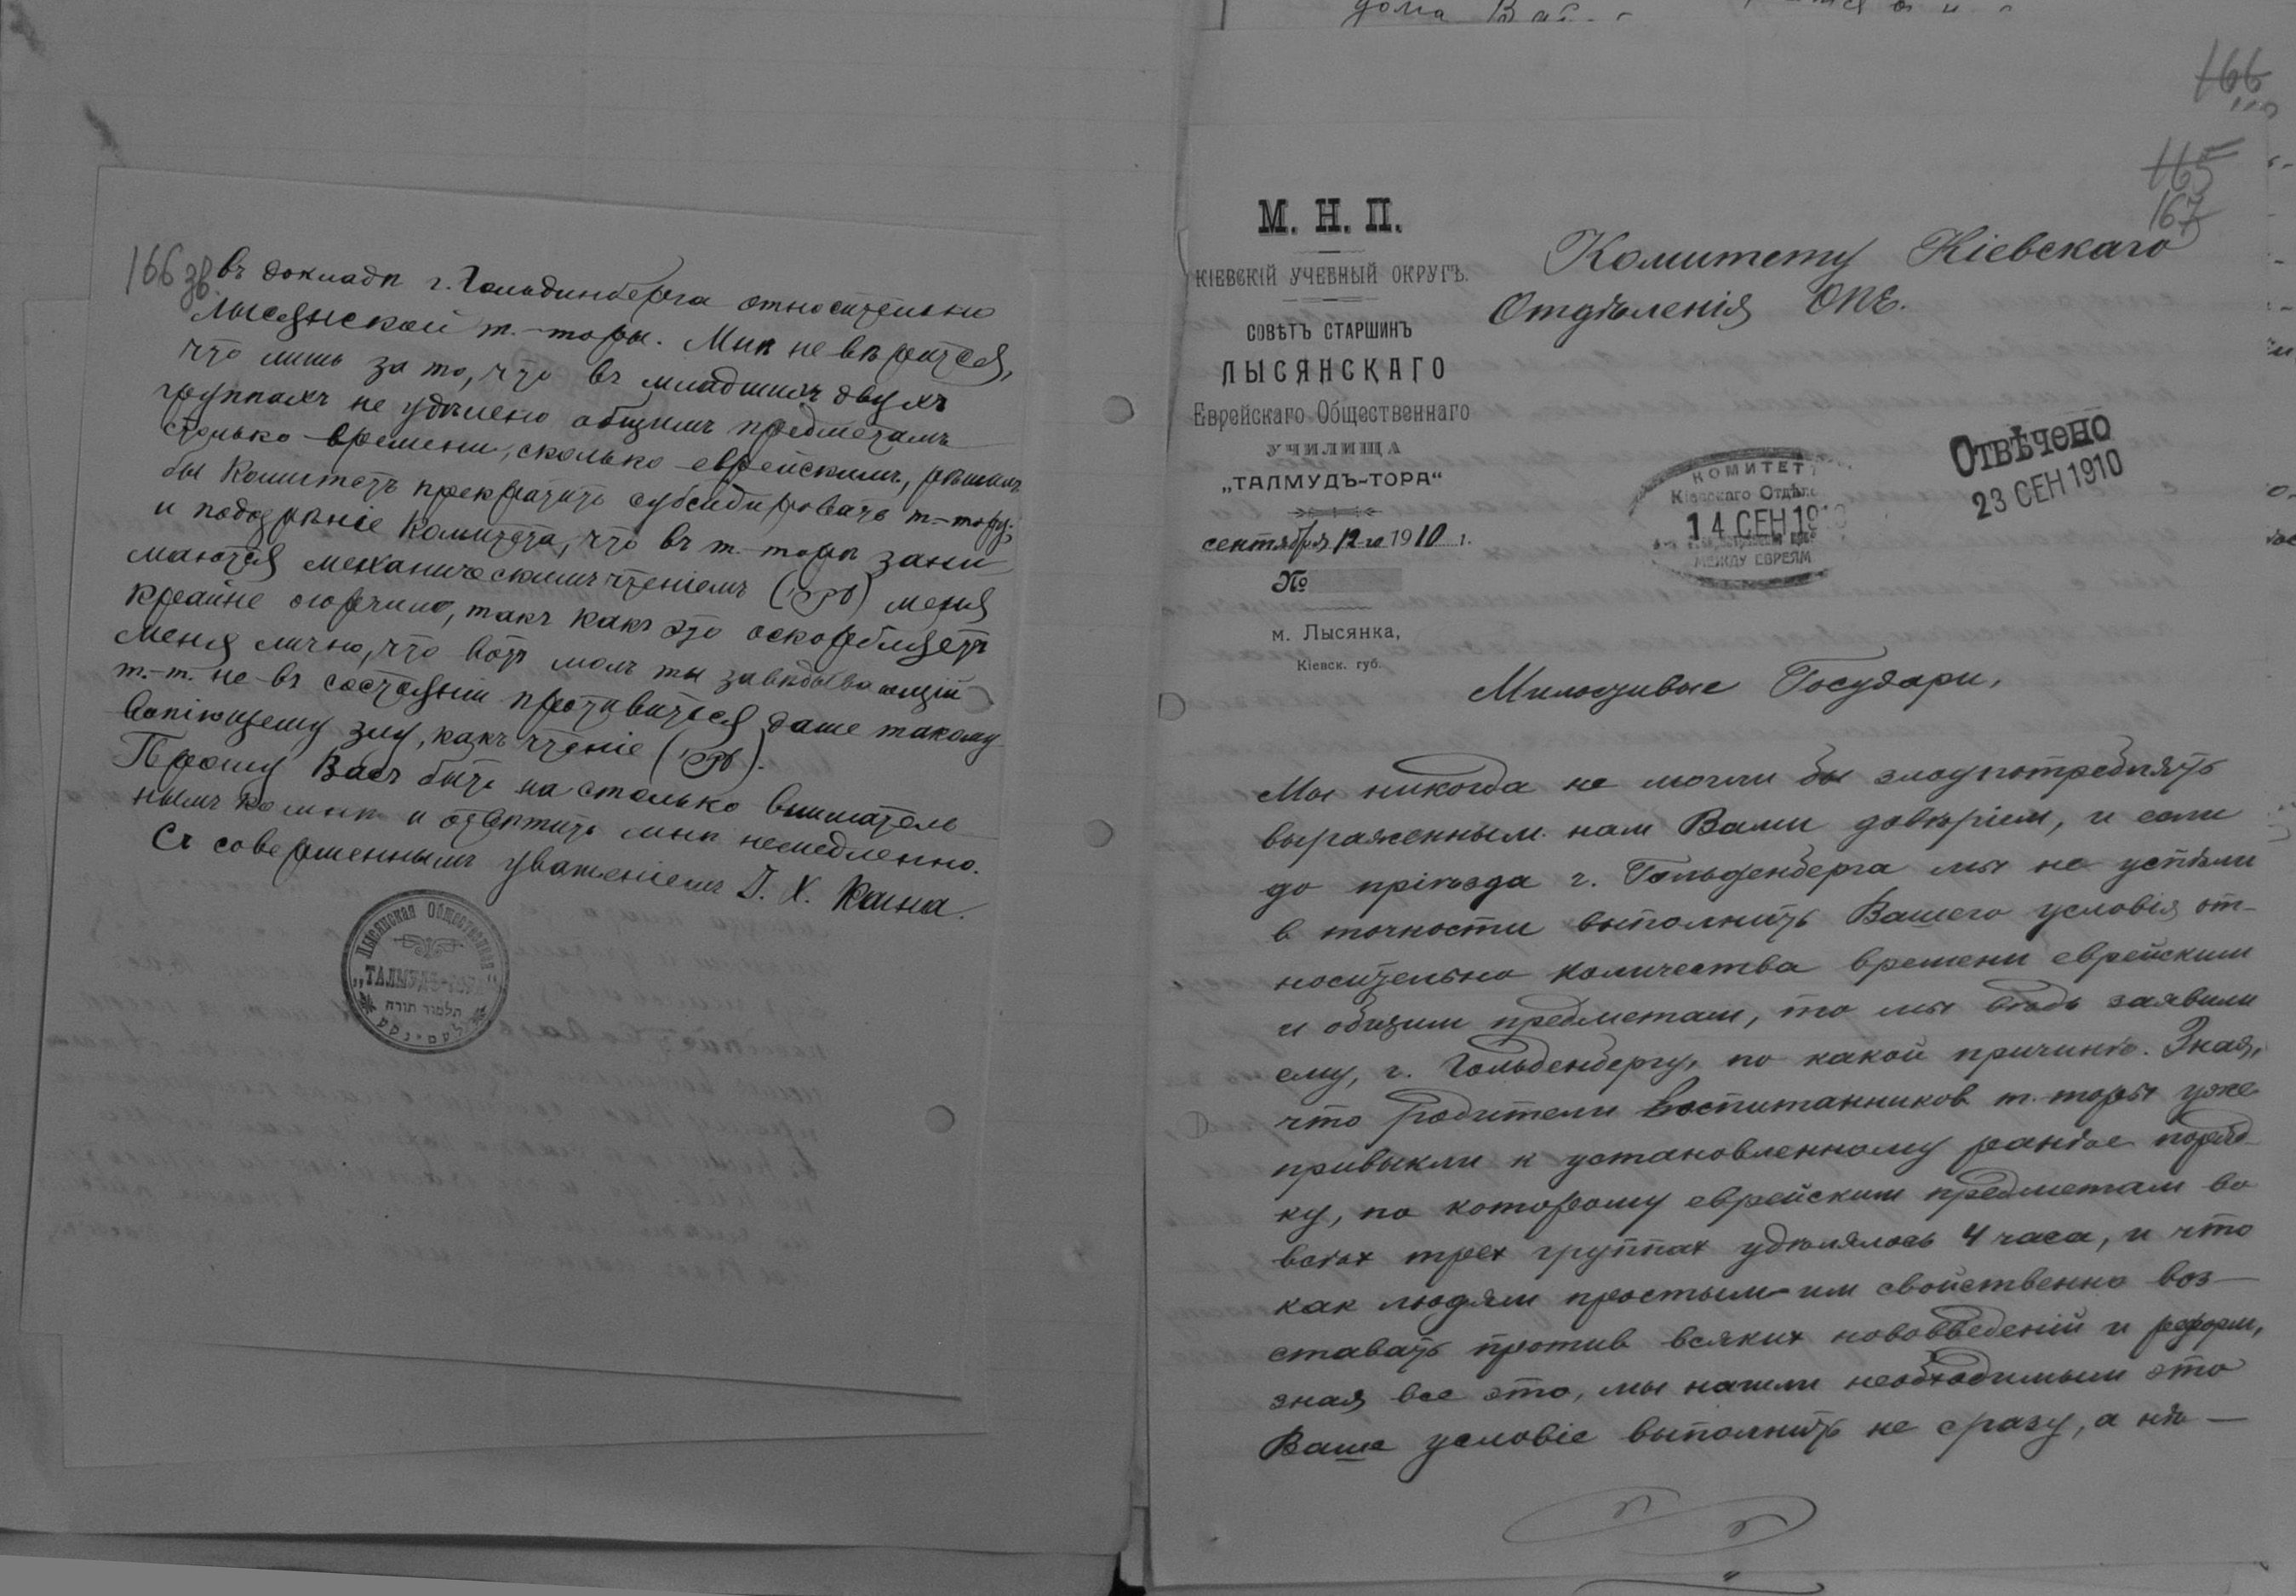 166 зв
въ докладѣ г. Гольдинберга относительно
Лысянской т.-торы. Мнѣ не вѣрится,
что лишь за то, что въ младшихъ двухъ
группахъ не удѣлено общимъ предметамъ
столько времени, сколько еврейскимъ, рѣшилъ
бы Комитетъ прекратить субсидировать т.-тору;
и подозрѣніе Комитета, что въ т.-торѣ зани
маются механическимъ чтеніемъ (עברי) меня
крайне огорчило, такъ какъ это оскорбляетъ
меня лично, что вотъ молъ ты завѣдывающій
т.-т. не въ состояніи противиться даже такому
вопіющему злу, какъ чтеніе (עברי).
Прошу Васъ быть на столько вниматель
нымъ ко мнѣ и отвѣтить мнѣ немедленно.
Съ совершеннымъ уваженіемъ І. Х. Кагна.
Лысянская Общественная
„ТАЛМУДЪ-ТОРА"
תלמוד תורה
166
165
167
М. Н. П.
КІЕВСКІЙ УЧЕБНЫЙ ОКРУГЪ.
СОВѢТЪ СТАРШИНЪ
ЛЫСЯНСКАГО
Еврейскаго Общественнаго
УЧИЛИЩА
„ТАЛМУДЪ-ТОРА“
сентября 12-го 1910 г.
№
м. Лысянка,
Кіевск. губ.
Комитету Кіевскаго
Отдѣленія ОПЕ.
КОМИТЕТ
Кіевскаго Отдѣл
14 СЕН 1910
МЕЖДУ ЕВРЕЯМ
Отвѣчено
23 СЕН 1910
Милостивые Государи,
Мы никогда не могли бы злоупотреблять
выраженным нам Вами довѣріем, и если
до пріѣзда г. Гольденберга мы не успѣли
в точности выполнить Вашего условія от-
носительно количества времени еврейским
и общим предметам, то мы вѣдь заявили
ему, г. Гольденбергу, по какой причинѣ. Зная,
что родители воспитанников т.-торы уже
привыкли к установленному ранѣе поряд
ку, по которому еврейским предметам во
всѣх трех группах удѣлялось 4 часа, и что
как людям простым им свойственно воз-
ставать против всяких нововведеній и реформ,
зная все это, мы нашли необходимым это
Ваше условіе выполнить не сразу, а нѣ-